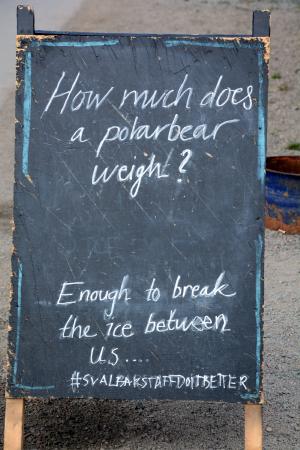 How much does
a polarbear
weigh?
Enough to break
the ice between
us....
#SVALBARSTAFFDOITBETTER